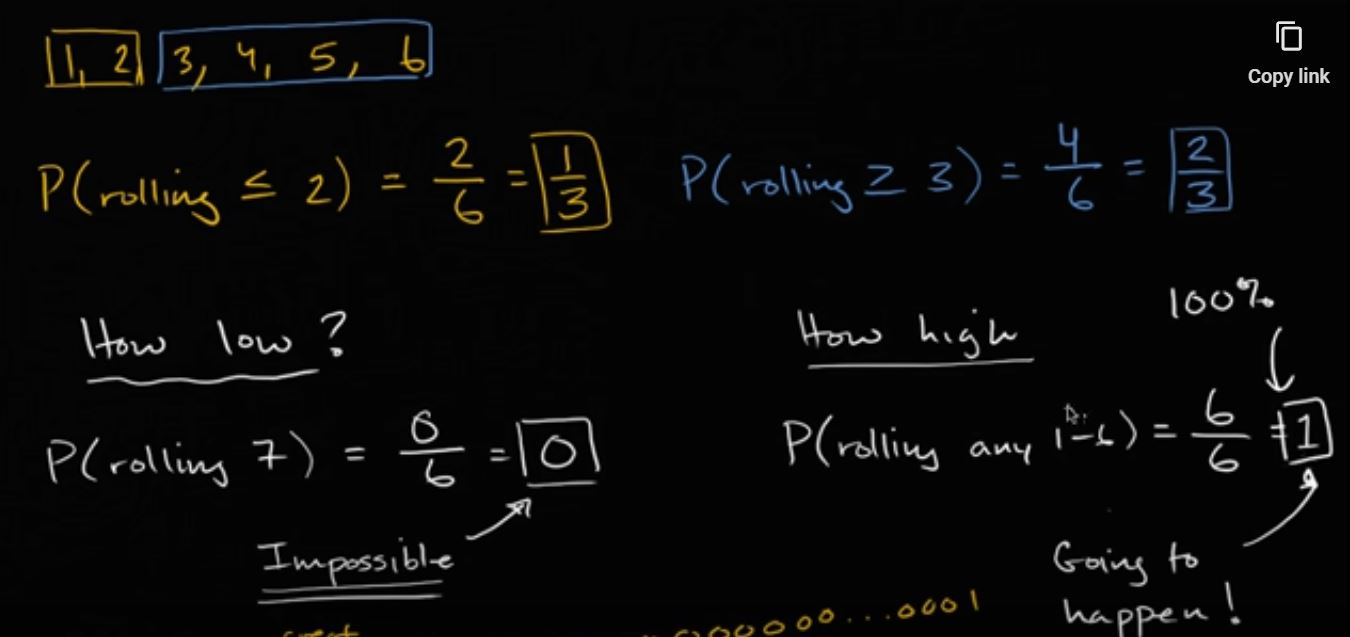 1, 2, 3, 4, 5, 6
Copy link
P(rolling ≤ 2) = 2/6 = 1/3
P(rolling ≥ 3) = 4/6 = 2/3
How low?
P(rolling 7) = 0/6 = 0
Impossible
How high
100%
P(rolling any 1-6) = 6/6 = 1
Going to
happen!
000000...0001